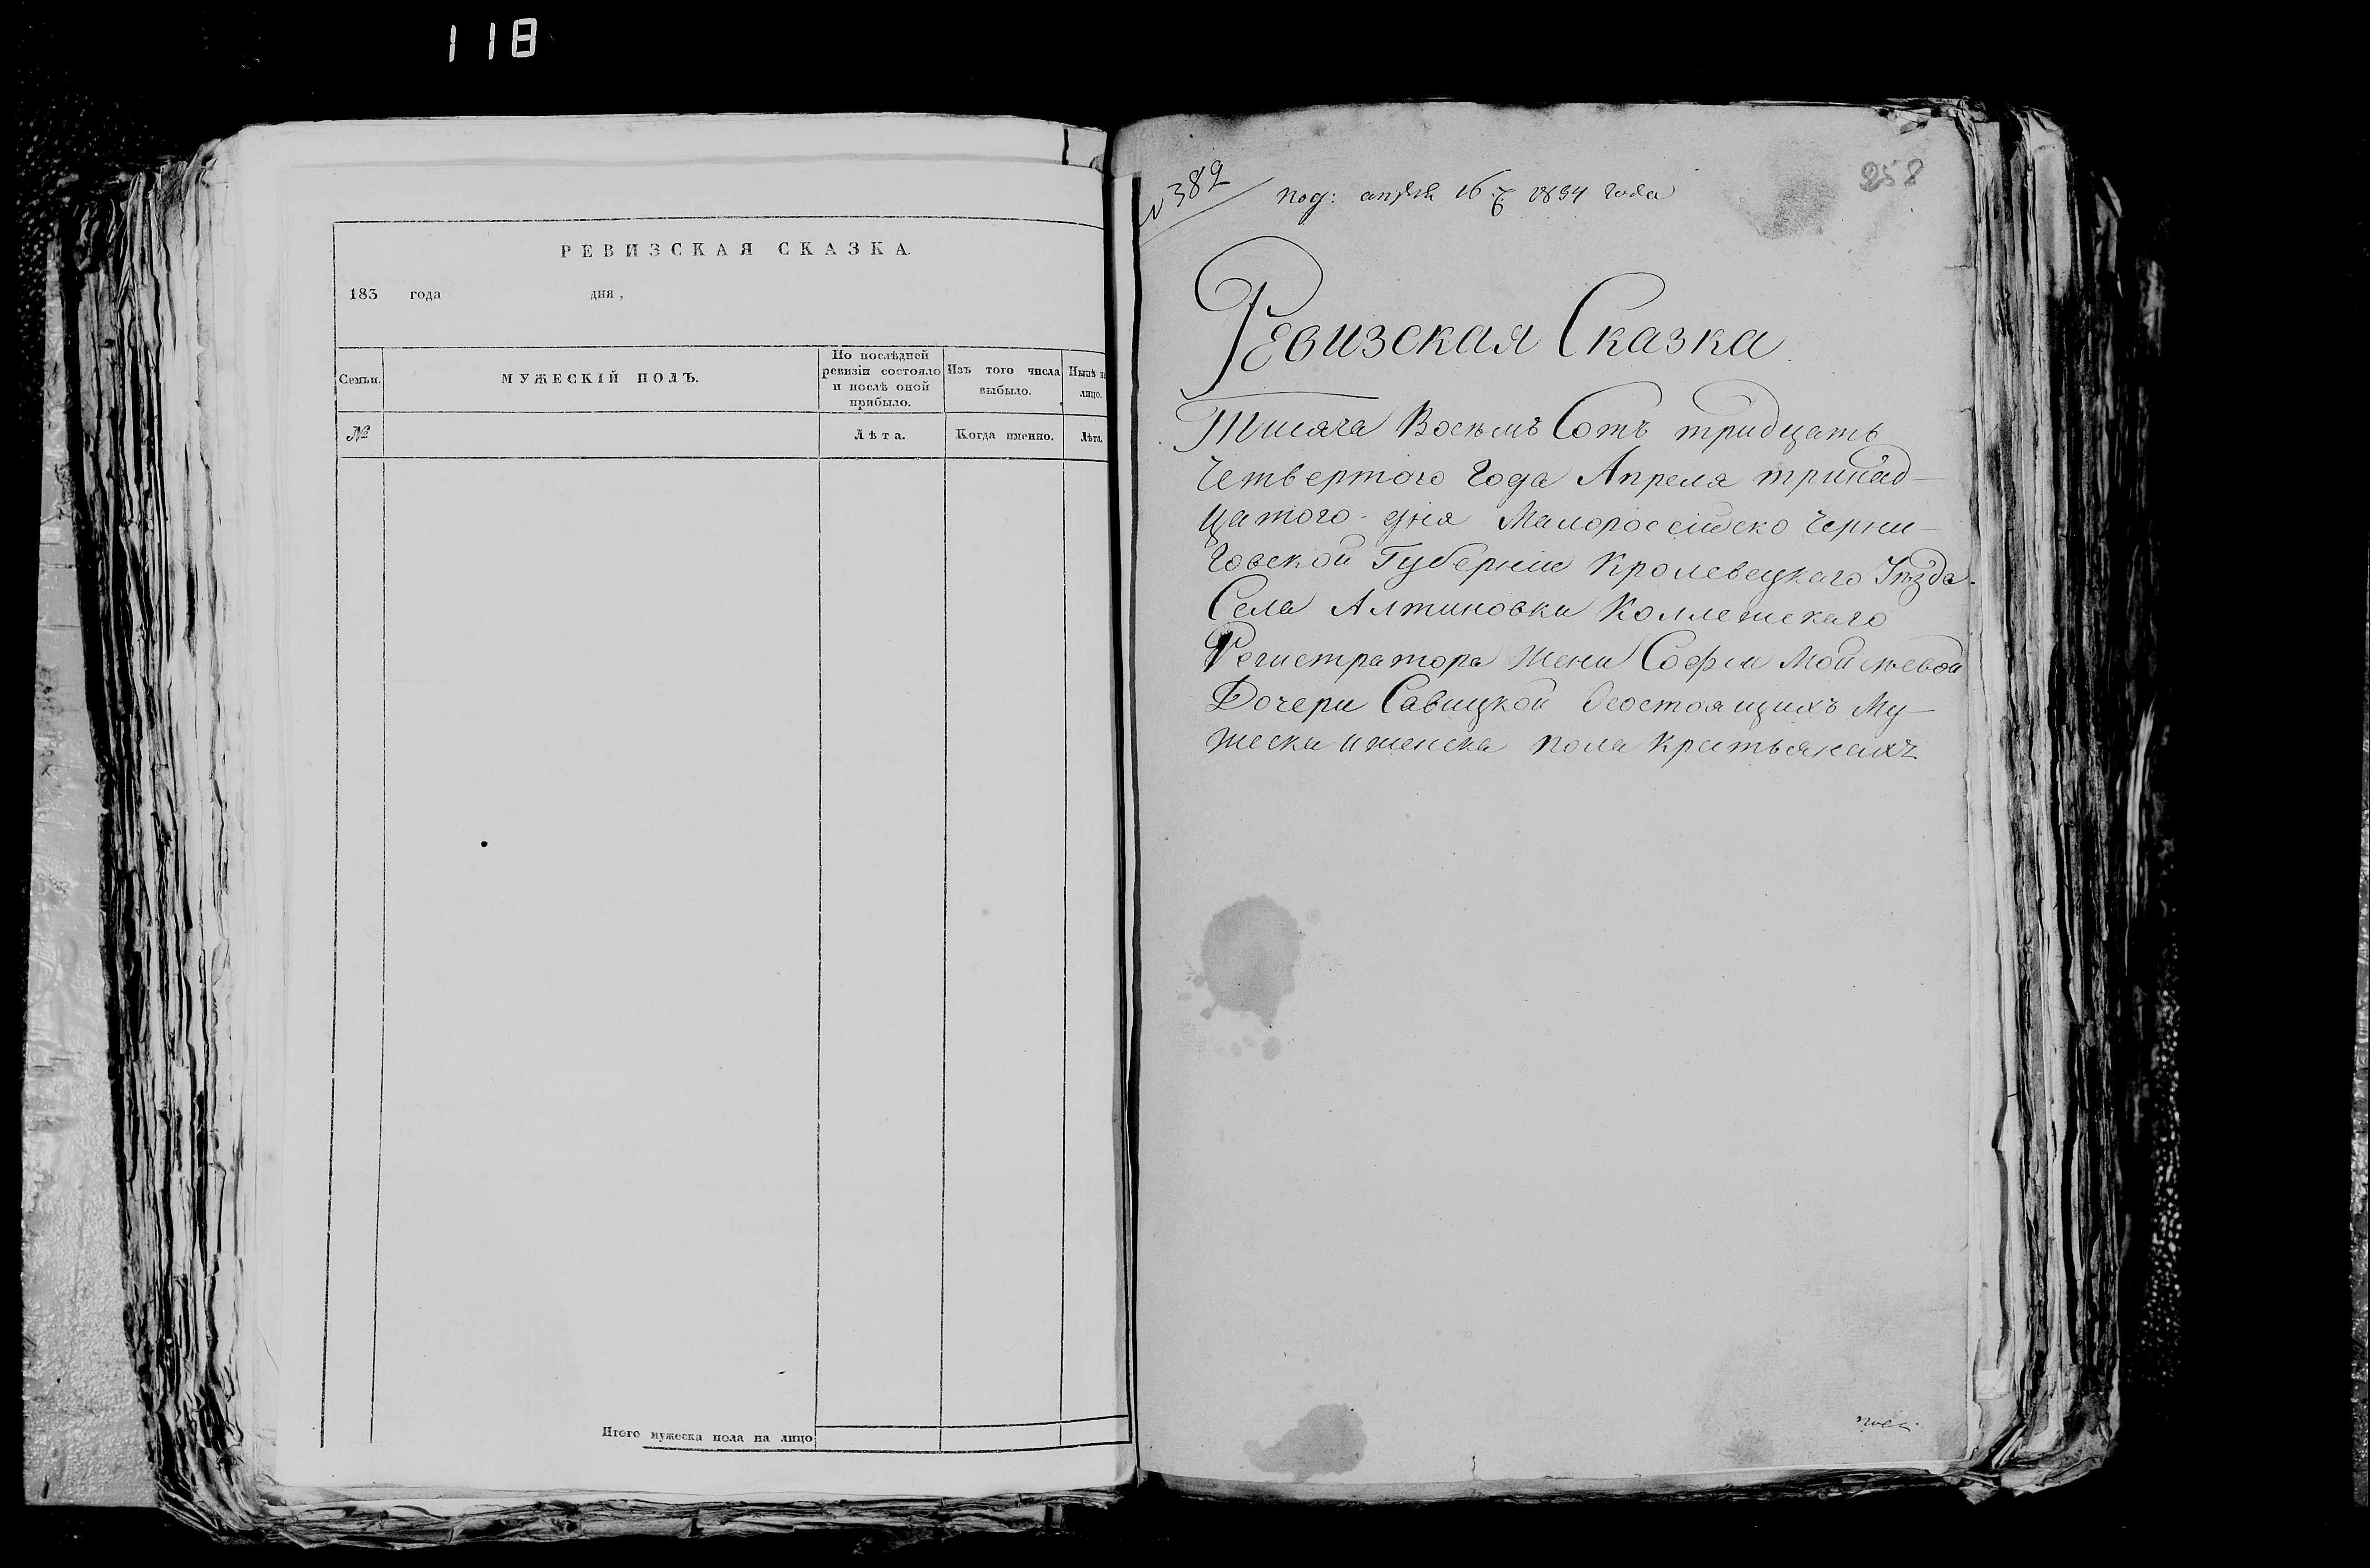 118
РЕВИЗСКАЯ СКАЗКА.
183 года дня,
Семьи.
МУЖЕСКІЙ ПОЛЪ.
По послѣдней
ревизіи состояло
и послѣ оной
прибыло.
Изъ того числа
выбыло.
Нынѣ на
лицо.
№
Лѣта.
Когда именно.
Лѣта.
Итого мужеска пола на лицо
№ 389
258
под: апреля 16 1834 года
Ревизская Сказка
Тисяча Восѣмъ Сотъ тридцать
Четвертого Года Апреля тринад-
цатого дня Малоросейско Черни-
Говской Губерніи Кролевецкаго Уѣзда
Села Алтиновки Коллежскаго
Регистратора Жени Софіи
Дочери Савицкой Осостоящихъ Му-
жеска и женска пола Крестьянахъ